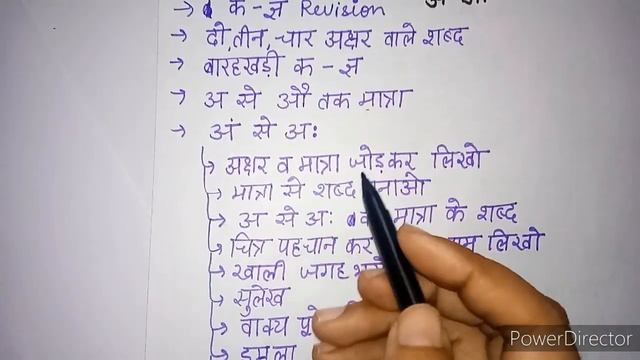 → क - ज्ञ Revision
→ दो, तीन, चार अक्षर वाले शब्द
→ बारहखड़ी क - ज्ञ
→ अ से औ तक मात्रा
→ अं से अः
→ अक्षर व मात्रा जोड़कर लिखो
→ मात्रा से शब्द बनाओ
→ अ से अः की मात्रा के शब्द
→ चित्र पहचान कर लिखो
→ खाली जगह
→ सुलेख
→ वाक्य
→ इमला
PowerDirector